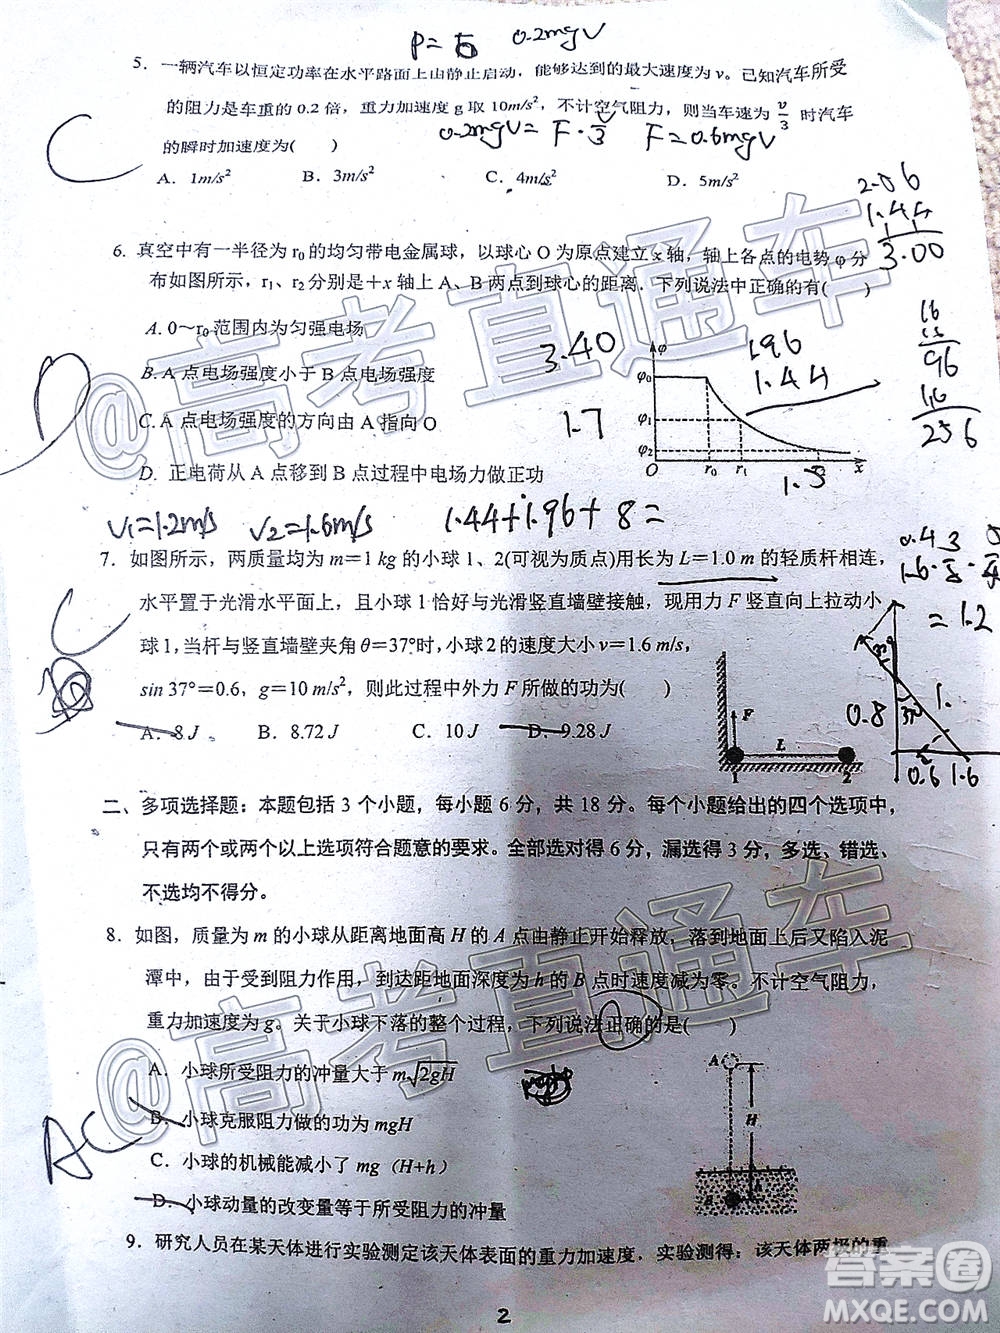 P= 0.2mgv
5．一辆汽车以恒定功率在水平路面上由静止启动，能够达到的最大速度为 v。已知汽车所受
的阻力是车重的 0.2 倍，重力加速度 g 取 10m/s²，不计空气阻力，则当车速为 v/3 时汽车
0.2mgv= F·v/3 F=0.6mg
的瞬时加速度为( )
C
A．1m/s² B．3m/s² C．4m/s² D．5m/s²
1.44
3.00
6．真空中有一半径为 r₀ 的均匀带电金属球，以球心 O 为原点建立 x 轴，轴上各点的电势 φ 分
布如图所示，r₁、r₂分别是＋x 轴上 A、B 两点到球心的距离．下列说法中正确的有( )
A．0～r₀ 范围内为匀强电场
B．A 点电场强度小于 B 点电场强度
C．A 点电场强度的方向由 A 指向 O
D．正电荷从 A 点移到 B 点过程中电场力做正功
3.40
1.7
1.96
1.44
φ
φ₀
φ₁
φ₂
O r₀ r₁ x
16
96
16
256
V₁=1.2m/s V₂=1.6m/s 1.44+1.96+8=
7．如图所示，两质量均为 m＝1 kg 的小球 1、2(可视为质点)用长为 L＝1.0 m 的轻质杆相连，
水平置于光滑水平面上，且小球 1 恰好与光滑竖直墙壁接触，现用力 F 竖直向上拉动小
球 1，当杆与竖直墙壁夹角 θ＝37°时，小球 2 的速度大小 v＝1.6 m/s，
sin 37°＝0.6，g＝10 m/s²，则此过程中外力 F 所做的功为( )
C
A．8 J B．8.72 J C．10 J D．9.28 J
F
L
1 2
=1.2
37°
37°
0.8
1.
0.6
1.6
二、多项选择题：本题包括 3 个小题，每小题 6 分，共 18 分。每个小题给出的四个选项中，
只有两个或两个以上选项符合题意的要求。全部选对得 6 分，漏选得 3 分，多选、错选、
不选均不得分。
8．如图，质量为 m 的小球从距离地面高 H 的 A 点由静止开始释放，落到地面上后又陷入泥
潭中，由于受到阻力作用，到达距地面深度为 h 的 B 点时速度减为零。不计空气阻力，
重力加速度为 g。关于小球下落的整个过程，下列说法正确的是( )
A．小球所受阻力的冲量大于 m√2gH
B．小球克服阻力做的功为 mgH
C．小球的机械能减小了 mg（H+h）
D．小球动量的改变量等于所受阻力的冲量
AC
A
H
9．研究人员在某天体进行实验测定该天体表面的重力加速度，实验测得：该天体两极的重
2
@高考直通车
@高考直通车
答案圈
MXQE.COM